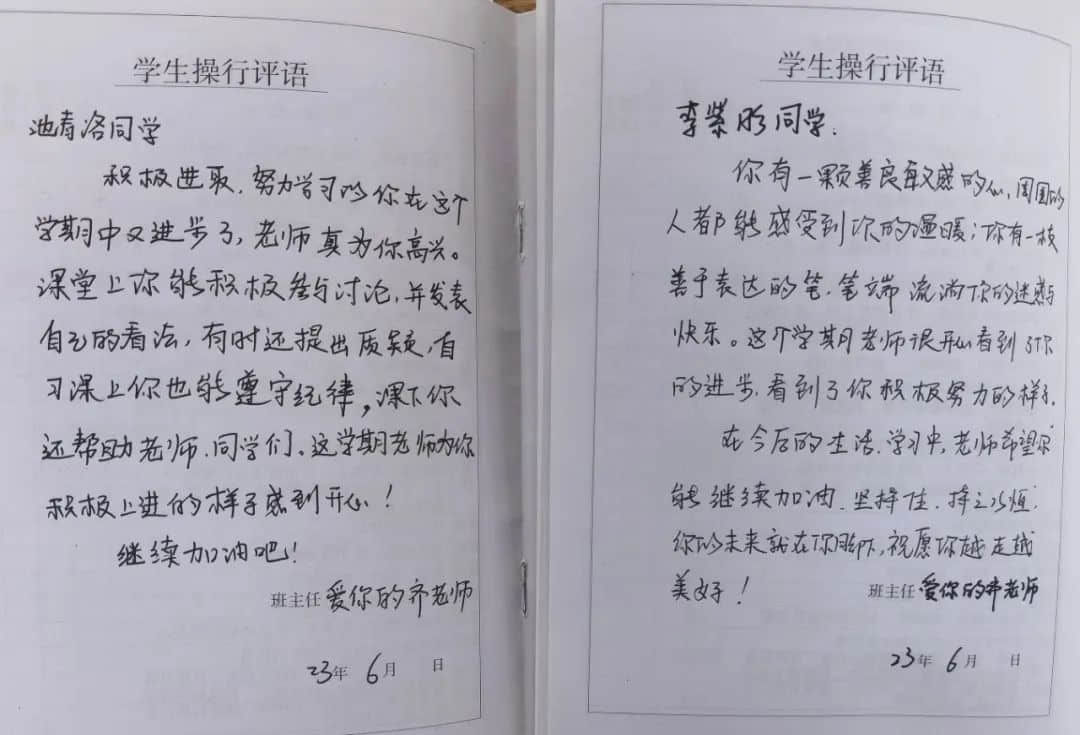 学生操行评语
池春洛同学
积极进取、努力学习的你在这个
学期中又进步了，老师真为你高兴。
课堂上你能积极参与讨论，并发表
自己的看法，有时还提出质疑，自
习课上你也能遵守纪律，课下你
还帮助老师、同学们。这学期老师为你
积极上进的样子感到开心！
继续加油吧！
班主任 爱你的齐老师
23年 6月 日
学生操行评语
李紫彤同学.
你有一颗善良敏感的心，周围的
人都能感受到你的温暖；你有一枝
善于表达的笔，笔端流淌你的迷惑与
快乐。这个学期老师很开心看到了你
的进步，看到了你积极努力的样子.
在今后的生活、学习中，老师希望你
能继续加油、坚持住，持之以恒.
你的未来就在你脚下，祝愿你越走越
美好！
班主任 爱你的齐老师
23年 6月 日